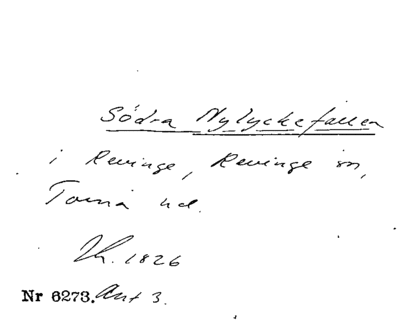 Södra Nylyckefallen
i Revinge, Revinge sn,
Torna hd.
1826
Nr 6273. Ant 3.